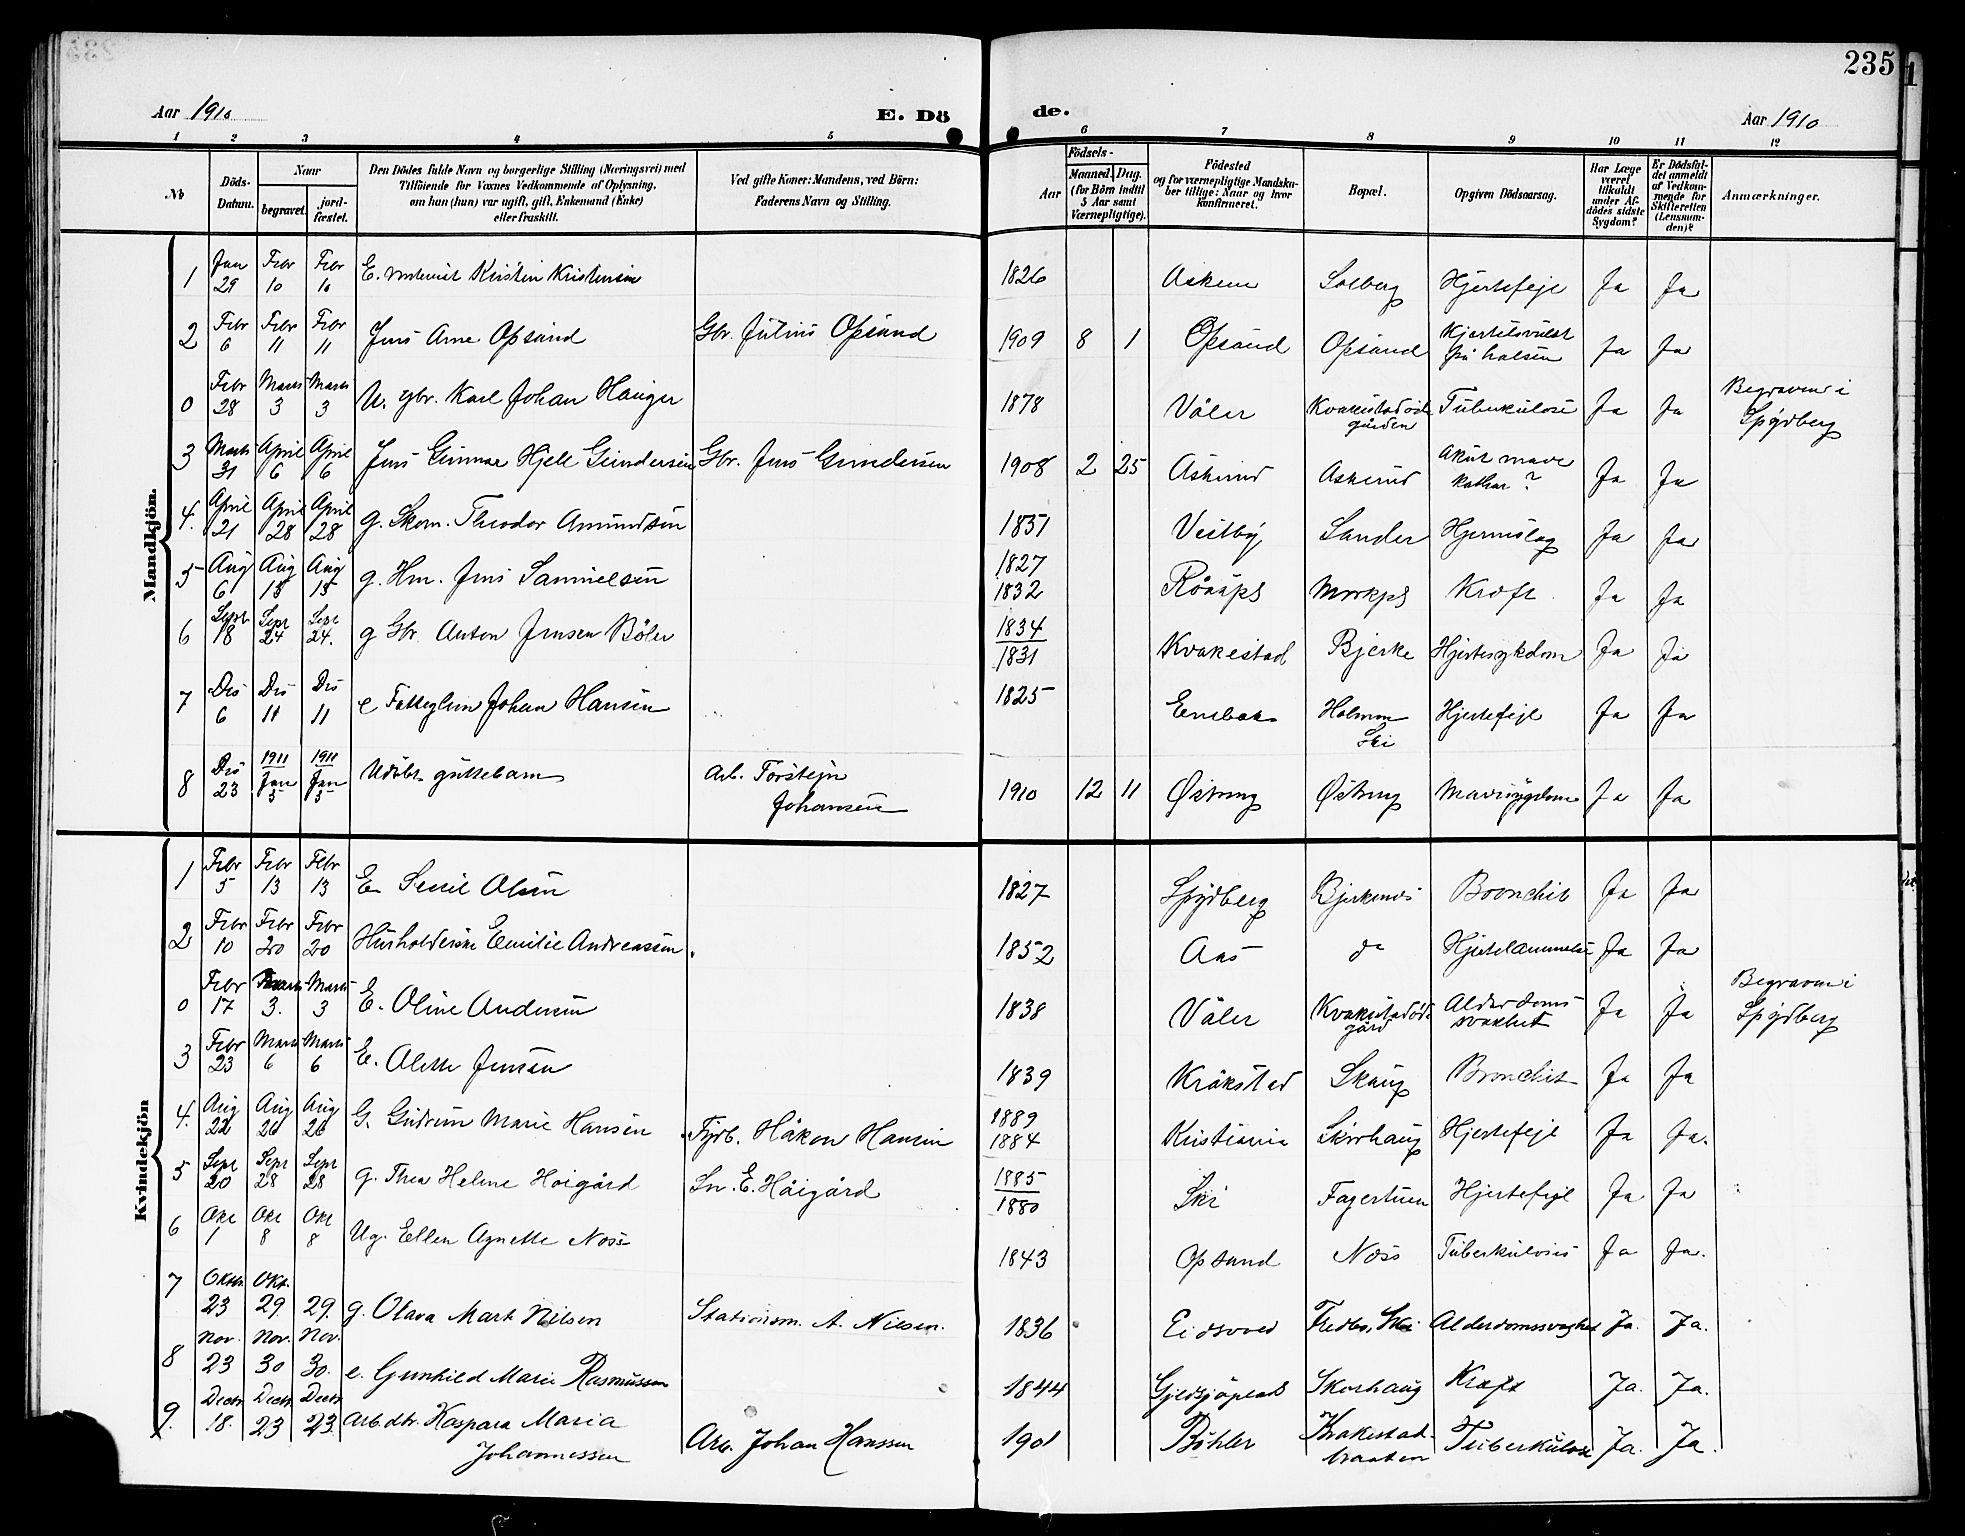 235
Aar 1910
E. Dö
de.
Aar 1910
1 2 3 4 5 6 7 8 9 10 11 12
№
Döds-Datum.
Naar
begravet.
jord-fæstet.
Den Dödes fulde Navn og borgerlige Stilling (Næringsvei) med
Tilföiende for Voxnes Vedkommende af Oplysning,
om han (hun) var ugift, gift, Enkemand (Enke)
eller fraskilt.
Ved gifte Koner: Mandens, ved Börn:
Faderens Navn og Stilling.
Födsels-
Aar
Maaned. Dag.
(for Börn indtil
5 Aar samt
Værnepligtige).
Födested
og for værnepligtige Mandska-
ber tillige: Naar og hvor
konfirmeret.
Bopæl.
Opgiven Dödsaarsag.
Har Læge
været
tilkaldt
under Af-
dödes sidste
Sygdom?
Er Dödsfal-
det anmeldt
af Vedkom-
mende for
Skifteretten
(Lensman-
den)?
Anmærkninger.
Mandkjön.
1 Jan 29 Febr 10 Febr 10 E. Kristin Kristensen 1826 Askim Solberg Hjertefejl Ja Ja
2 Febr 6 Febr 11 Febr 11 Jens Arne Opsand Gbr. Julius Opsand 1909 8 1 Opsand Opsand Kjertelsvulst på halsen Ja Ja
0 Febr 28 Marts 3 Marts 3 U. gbr. Karl Johan Hauger 1878 Våler Kvakestadöde gården Tuberkulose Ja Ja Begraven i Spydberg
3 Marts 31 April 6 April 6 Jens Gunnar Hjell Gundersen Gbr. Jens Gundersen 1908 2 25 Askerud Askerud Akut mave kathar? Ja Ja
4. April 21 April 28 April 28 g. Skom. Theodor Amundsen 1851 Vestby Sander Hjerneslag Ja Ja
5 Aug 6 Aug 13 Aug 13 g. Hm. Jens Samuelsen 1827 1832 Morkps Kræft. Ja Ja
6 Sept 18 Sept 24 Sept 24. g Gbr. Anton Jensen Böler 1834 1831 Kvakestad Bjerke Hjertesykdom Ja Ja
7 Des 6 Des 11 Des 11 e Fatteglem Johan Hansen 1825 Enebak Holmen Ski Hjertefejl Ja Ja
8 Des 23 1911 Jan 5 1911 Jan 5 Udöbt guttebarn Arb. Torstejn Johansen 1910 12 11 Østeng Østeng Mavesygdom Ja Ja
Kvindekjön
1 Febr 5 Febr 13 Febr 13 E. Olsen 1827 Spydberg Bjerkenes Bronchit Ja Ja
2 Febr 10 Febr 20 Febr 20 Husholderske Emilie Andreassen. 1852 Aas do Hjertelammelse Ja Ja
0 Febr 17 Marts 3. Marts 3 E. Oline Andersen 1838 Våler Kvakestadöde gård Alderdoms-svakhet Ja Ja Begraven i Spydberg
3 Febr 23 Marts 6 Marts 6 E. Alette Jensen 1839 Kråkstad Skaug Bronchit Ja Ja
4. Aug 22 Aug 26 Aug 26 G. Gudrun Marie Hansen Fyrb. Håkon Hansen 1889 1884 Kristiania Skorhaug Hjertefejl Ja Ja.
5 Sept 20 Sept 28 Sept 28 g. Thea Helene Höigård Sn. E. Höigård 1885 1880 Ski Fagertuen Hjertefejl Ja Ja
6 Okt 1 Okt 8 Okt 8 Ug. Ellen Agnette Næss 1843 Opsand Næss Tuberkulosis Ja Ja.
7 Oktbr. 23 Okt. 29 29. g. Olava Mart. Nilsen Stationsm. A. Nilsen. 1836 Eidsvold Fredbo, Ski Alderdomssvaghet Ja. Ja.
8 Nov. 23 Nov. 30 Nov. 30. e. Gunhild Marie Rasmussen 1844 Gjedsjöplads Skorhaug Kræft Ja. Ja.
9. Decbr. 18. Decbr. 23 Decbr. 23. Arb.dtr. Kaspara Maria Johannessen Arb. Johan Hanssen 1901 Böhler Krakestad-braaten Tuberkulose Ja. Ja.